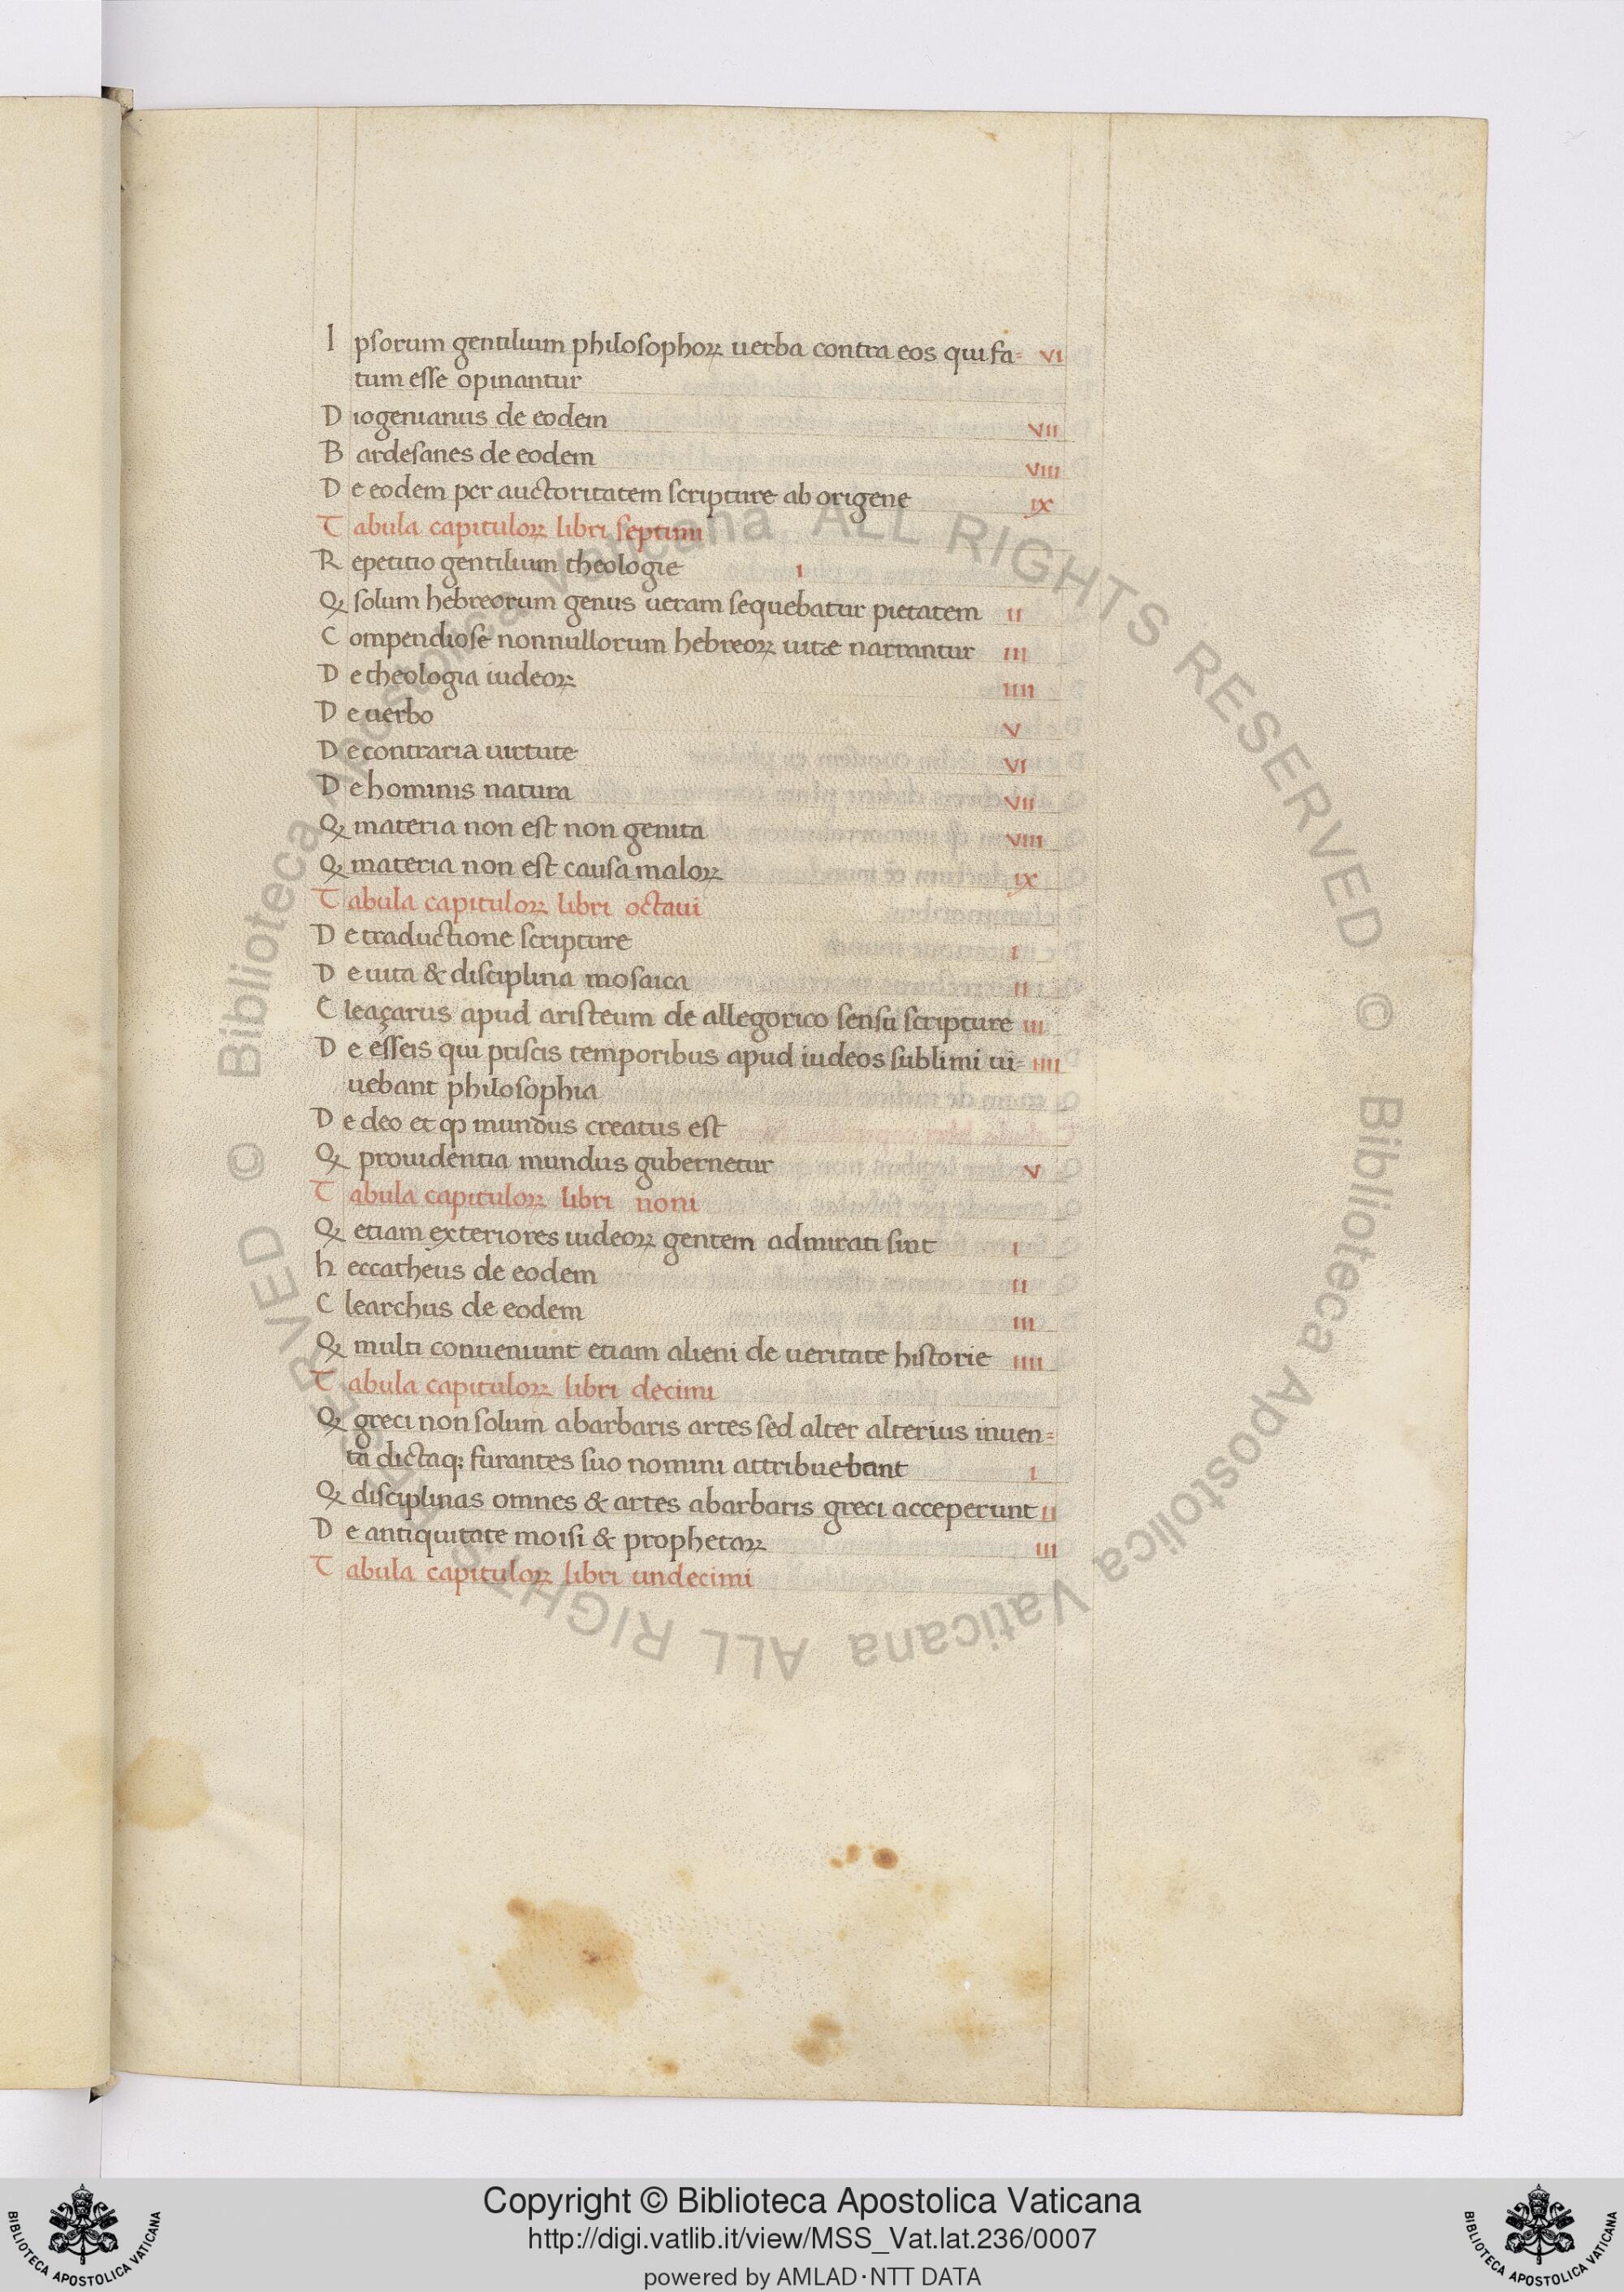 Ipsorum gentilium philosophoꝝ uerba contra eos qui fa= VI
tum esse opinantur
Diogenianus de eodem VII
Bardesanes de eodem VIII
De eodem per auctoritatem scripture ab origene IX
Tabula capituloꝝ libri septimi
Repetitio gentilium theologie I
Qꝫ solum hebreorum genus ueram sequebatur pietatem II
Compendiose nonnullorum hebreoꝝ uitæ narrantur III
De theologia iudeoꝝ IIII
De uerbo V
De contraria uirtute VI
De hominis natura VII
Qꝫ materia non est non genita VIII
Qꝫ materia non est causa maloꝝ IX
Tabula capituloꝝ libri octaui
De traductione scripture I
De uita & disciplina mosaica II
Cleaçarus apud aristeum de allegorico sensu scripture III
De esseis qui priscis temporibus apud iudeos sublimi ui= IIII
uebant philosophia
De deo et ꝙ mundus creatus est
Qꝫ prouidentia mundus gubernetur V
Tabula capituloꝝ libri noni
Qꝫ etiam exteriores iudeoꝝ gentem admirati sint I
heccatheus de eodem II
Clearchus de eodem III
Qꝫ multi conueniunt etiam alieni de ueritate historie IIII
Tabula capituloꝝ libri decimi
Qꝫ greci non solum abarbaris artes sed alter alterius inuen=
ta dictaqꝫ furantes suo nomini attribuebant I
Qꝫ disciplinas omnes & artes abarbaris greci acceperunt II
De antiquitate moisi & prophetaꝝ III
Tabula capituloꝝ libri undecimi
© Biblioteca Apostolica Vaticana ALL RIGHTS RESERVED © Biblioteca Apostolica Vaticana ALL RIGHTS RESERVED
Copyright © Biblioteca Apostolica Vaticana
http://digi.vatlib.it/view/MSS_Vat.lat.236/0007
powered by AMLAD·NTT DATA
BIBLIOTECA APOSTOLICA VATICANA
BIBLIOTECA APOSTOLICA VATICANA